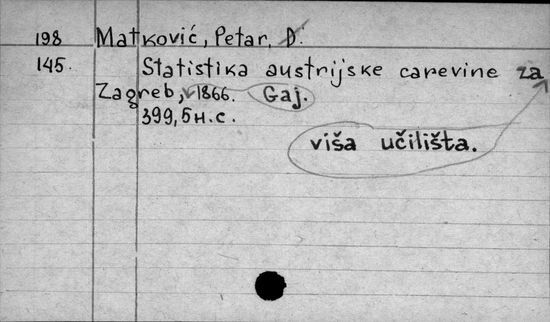 198 Matković, Petar, D.
145. Statistika austrijske carevine za
Zagreb, 1866. Gaj.
399, 5 н. c.
viša učilišta.